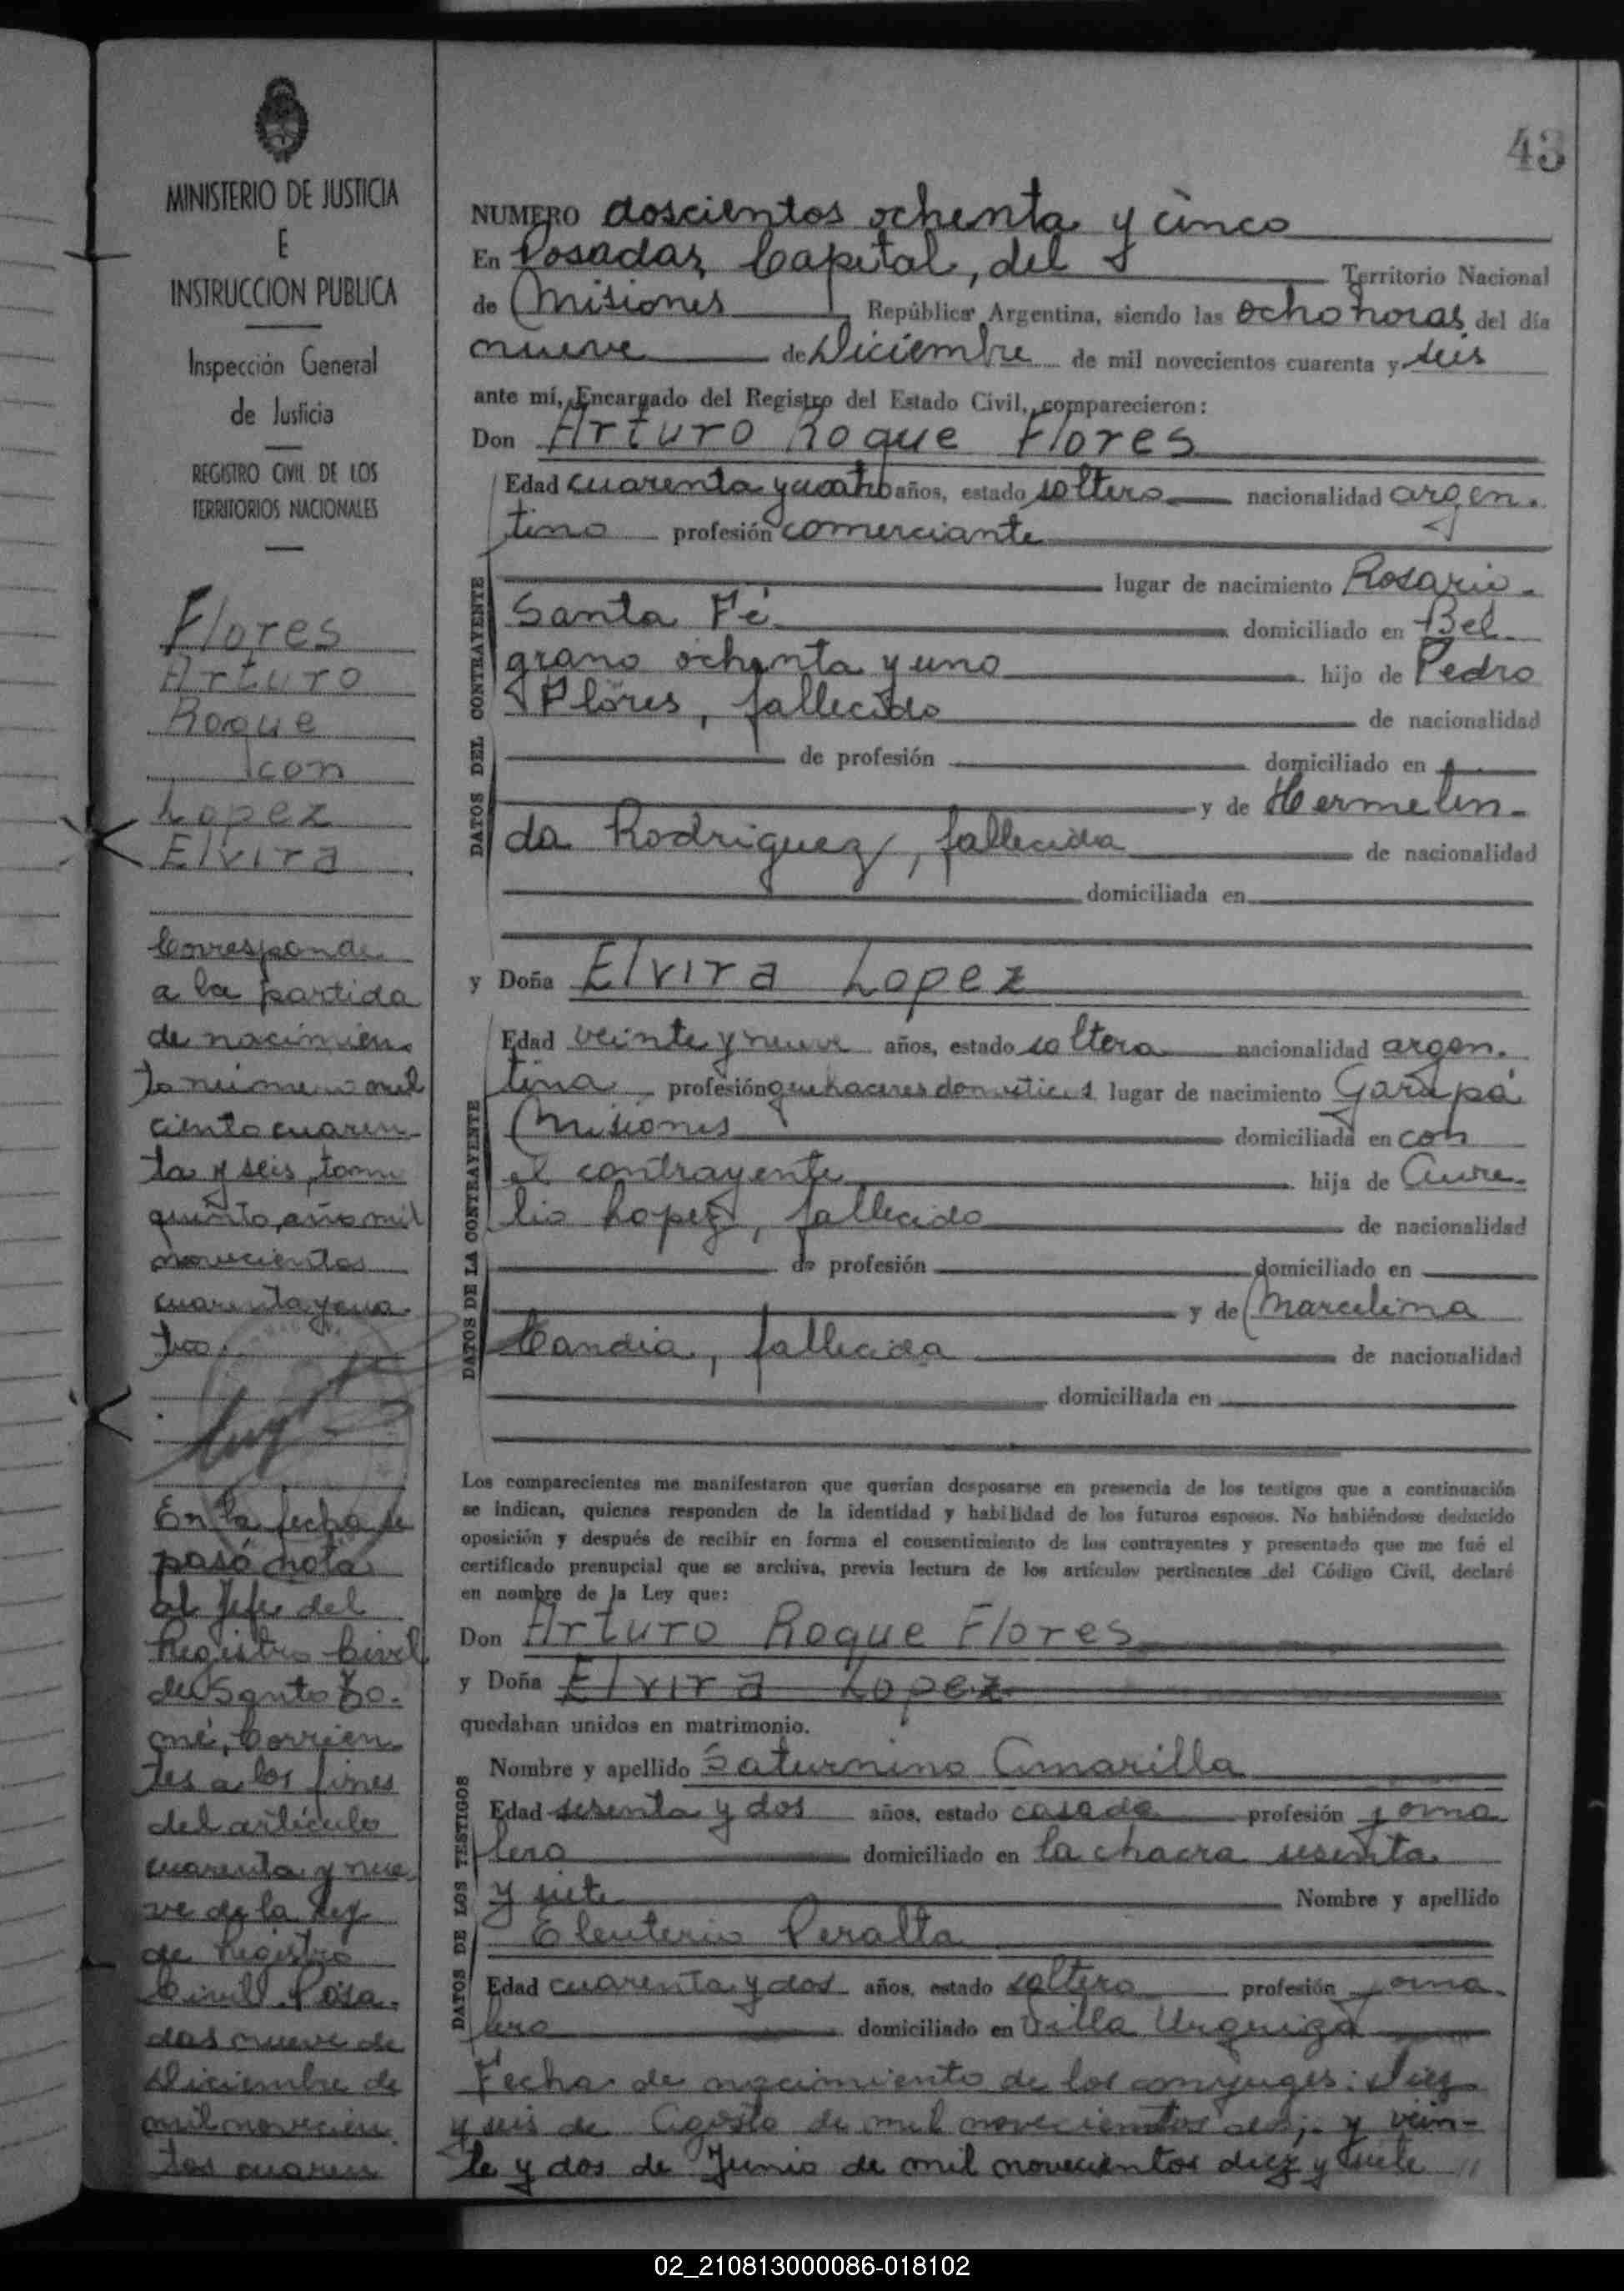 MINISTERIO DE JUSTICIA
E
INSTRUCCION PUBLICA
Inspección General
de Justicia
REGISTRO CIVIL DE LOS
TERRITORIOS NACIONALES
Flores
Arturo
Roque
con
Lopez
Elvira
Corresponde
a la partida
de nacimien-
to numero mil
ciento cuaren-
ta y seis, tomo
quinto, año mil
novecientos
cuarenta y cua-
tro.
En la fecha se
pasó nota
al Jefe del
Registro Civil
de Santo To-
mé, Corrien-
tes a los fines
del artículo
cuarenta y nue
ve de la Ley
de Registro
Civil. Posa-
das nueve de
Diciembre de
mil novecien
tos cuaren
43
NUMERO doscientos ochenta y cinco
En Posadas, Capital, del Territorio Nacional
de Misiones República Argentina, siendo las ocho horas del día
nueve de Diciembre de mil novecientos cuarenta y seis
ante mí, Encargado del Registro del Estado Civil, comparecieron:
Don Arturo Roque Flores
DATOS DEL CONTRAYENTE
Edad cuarenta y cuatro años, estado soltero nacionalidad argen-
tino profesión comerciante
lugar de nacimiento Rosario-
Santa Fé domiciliado en Bel-
grano ochenta y uno hijo de Pedro
Flores, fallecido de nacionalidad
de profesión domiciliado en
y de Hermelin-
da Rodriguez, fallecida de nacionalidad
domiciliada en
y Doña Elvira Lopez
DATOS DE LA CONTRAYENTE
Edad veinte y nueve años, estado soltera nacionalidad argen-
tina profesión quehaceres domesticos lugar de nacimiento Garupá
Misiones domiciliada en con
el contrayente hija de Aure-
lio Lopez, fallecido de nacionalidad
de profesión domiciliado en
y de Marcelina
Candia, fallecida de nacionalidad
domiciliada en
Los comparecientes me manifestaron que querían desposarse en presencia de los testigos que a continuación
se indican, quienes responden de la identidad y habilidad de los futuros esposos. No habiéndose deducido
oposición y después de recibir en forma el consentimiento de los contrayentes y presentado que me fué el
certificado prenupcial que se archiva, previa lectura de los artículos pertinentes del Código Civil, declaré
en nombre de la Ley que:
Don Arturo Roque Flores
y Doña Elvira Lopez
quedaban unidos en matrimonio.
DATOS DE LOS TESTIGOS
Nombre y apellido Saturnino Amarilla
Edad sesenta y dos años, estado casado profesión jorna
lero domiciliado en la chacra sesenta
y siete Nombre y apellido
Eleuterio Peralta
Edad cuarenta y dos años, estado soltero profesión jorna-
lero domiciliado en Villa Urquiza
Fecha de nacimiento de los conyuges: Diez
y seis de Agosto de mil novecientos dos; y vein-
te y dos de Junio de mil novecientos diez y siete
02_210813000086-018102